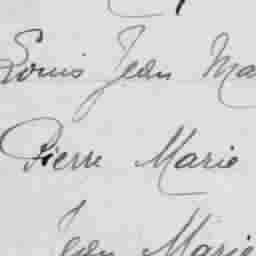 Louis Jean Ma
Pierre Marie
Jean Marie